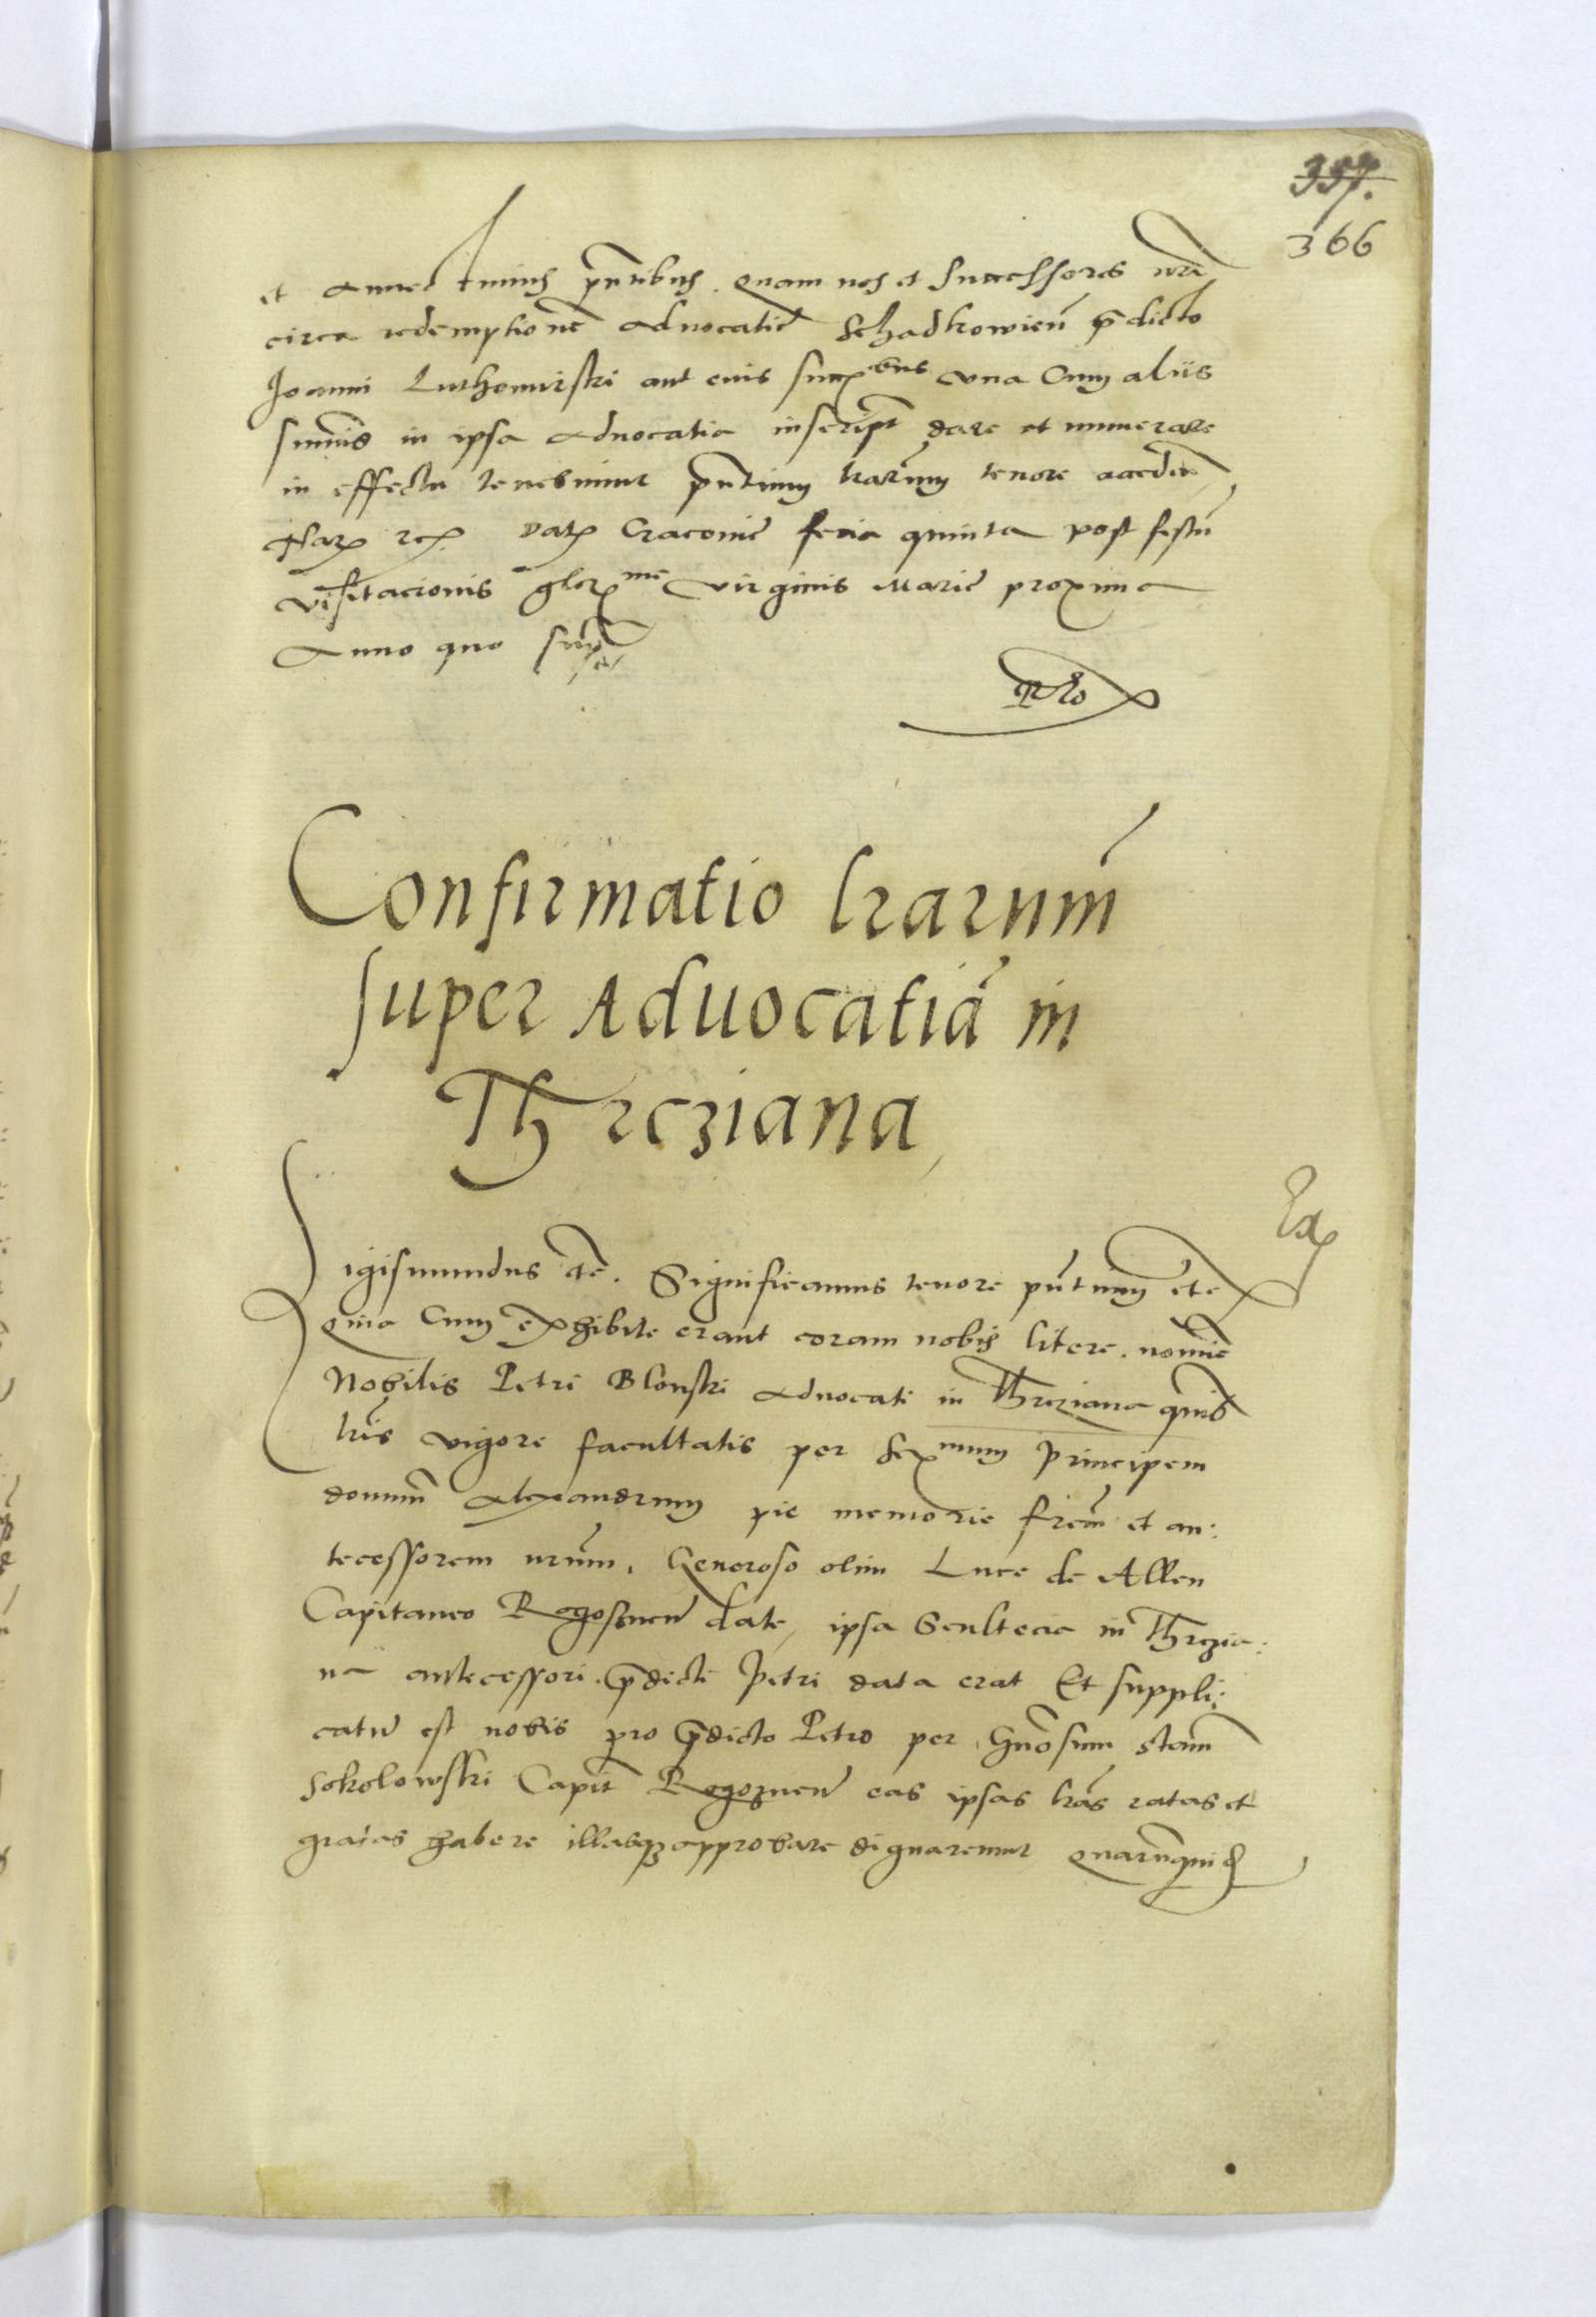 357.
366
et annectimus pñtibus. quam nos et Successores nrĩ
circa redemptionẽ aduocatie Schadkowieñ p̃dicto
Joanni Luthomirski aut eius succ̃bus vna Cum aliis
summis in ipsa aduocatia inscript̃ dare et numerare
in effectu tenebimur pñtium lrarum tenore
Harȝ Datȝ Cracouie feria quinta post festũ
visitacionis glorme virginis Marie proxima
Anno quo supra
Confirmatio lrarum̃
super Aduocatiã in
Threziana
Ex
Sigismundus etc̃. Significamus tenore pñtium etc̃
Quia Cum exhibite erant coram nobis litere. nomiẽ
Nobilis Petri Blonski aduocati in Threziana quibũs
lris vigore facultatis per Serenmum principem
domnum̃ Alexandrum pie memorie frem̃ et an:
tecessorem nrum̃, Generoso olim Luce de Allen
Capitaneo Rogosneñ date, ipsa Scultecia in Threzia:
na antecessori p̃dicti Petri data erat Et suppli:
catũ est nobis pro p̃dicto Petro per Gñosum Stanĩ
Sokolowski Capit̃ Rogozneñ eas ipsas lrãs ratas et
gratas habere illasqȝ approbare dignaremur